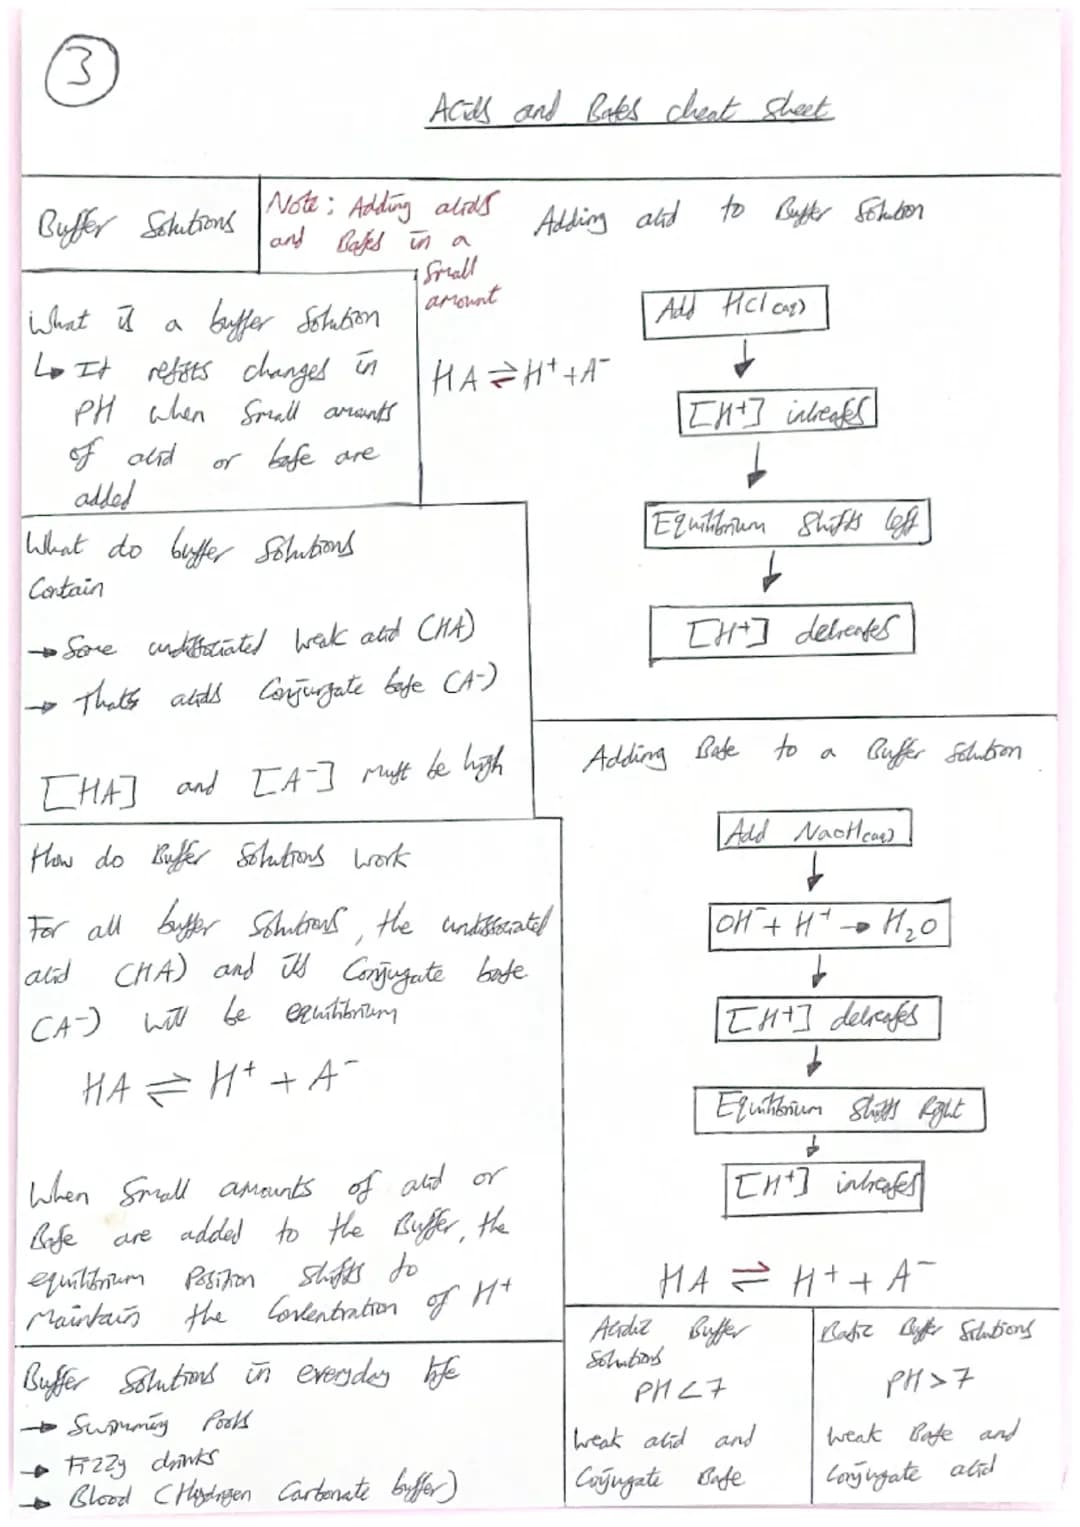 3
Acids and Bases cheat sheet
Buffer Solutions
Note: Adding acids
and Bases in a
small
amount
What is a buffer solution
↳ It resists changes in
PH when small amounts
of acid or base are
added
HA ⇌ H⁺ + A⁻
What do buffer solutions
Contain
→ Some undissociated weak acid (HA)
→ Thats acids Conjurgate base (A-)
[HA] and [A-] must be high
How do Buffer Solutions work
For all buffer solutions, the undissociated
acid (HA) and its Conjugate base
(A-) will be equilibrium
HA ⇌ H⁺ + A⁻
When small amounts of acid or
Base are added to the Buffer, the
equilibrium Position shifts to
Maintain the Concentration of H+
Buffer Solutions in everyday life
→ Swimming Pools
→ Fizzy drinks
→ Blood (Hydrogen Carbonate buffer)
Adding acid to Buffer Solution
Add HCl (aq)
↓
[H+] increases
↓
Equilibrium shifts left
↓
[H+] decreases
Adding Base to a Buffer Solution
Add NaOH(aq)
↓
OH⁻ + H⁺ → H₂O
↓
[H+] decreases
↓
Equilibrium shifts Right
↓
[H+] increases
HA ⇌ H⁺ + A⁻
Acidic Buffer
Solutions
PH < 7
Weak acid and
Conjugate Base
Basic Buffer Solutions
PH > 7
Weak Base and
Conjugate acid